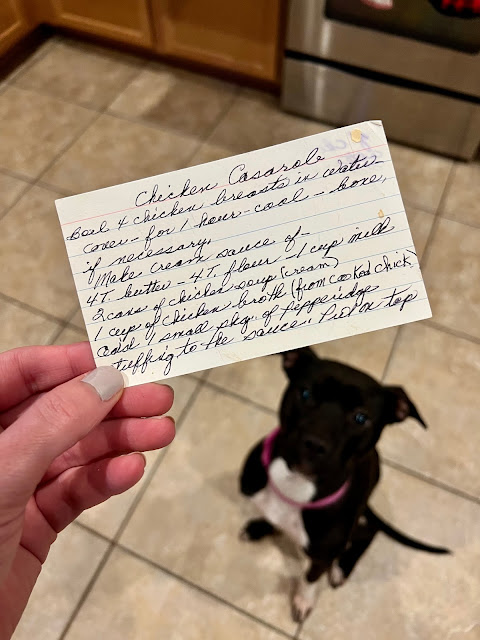 Chicken Casarole
Boil 4 chicken breasts in water -
cover - for 1 hour - cool - bone,
if necessary.
Make cream sauce of -
4T. butter - 4T. flour - 1 cup milk
2 cans of chicken soup (cream)
1 cup of chicken broth (from cooked chick)
Add 1 small pkg. of pepperidge
stuffing to the sauce. Put on top